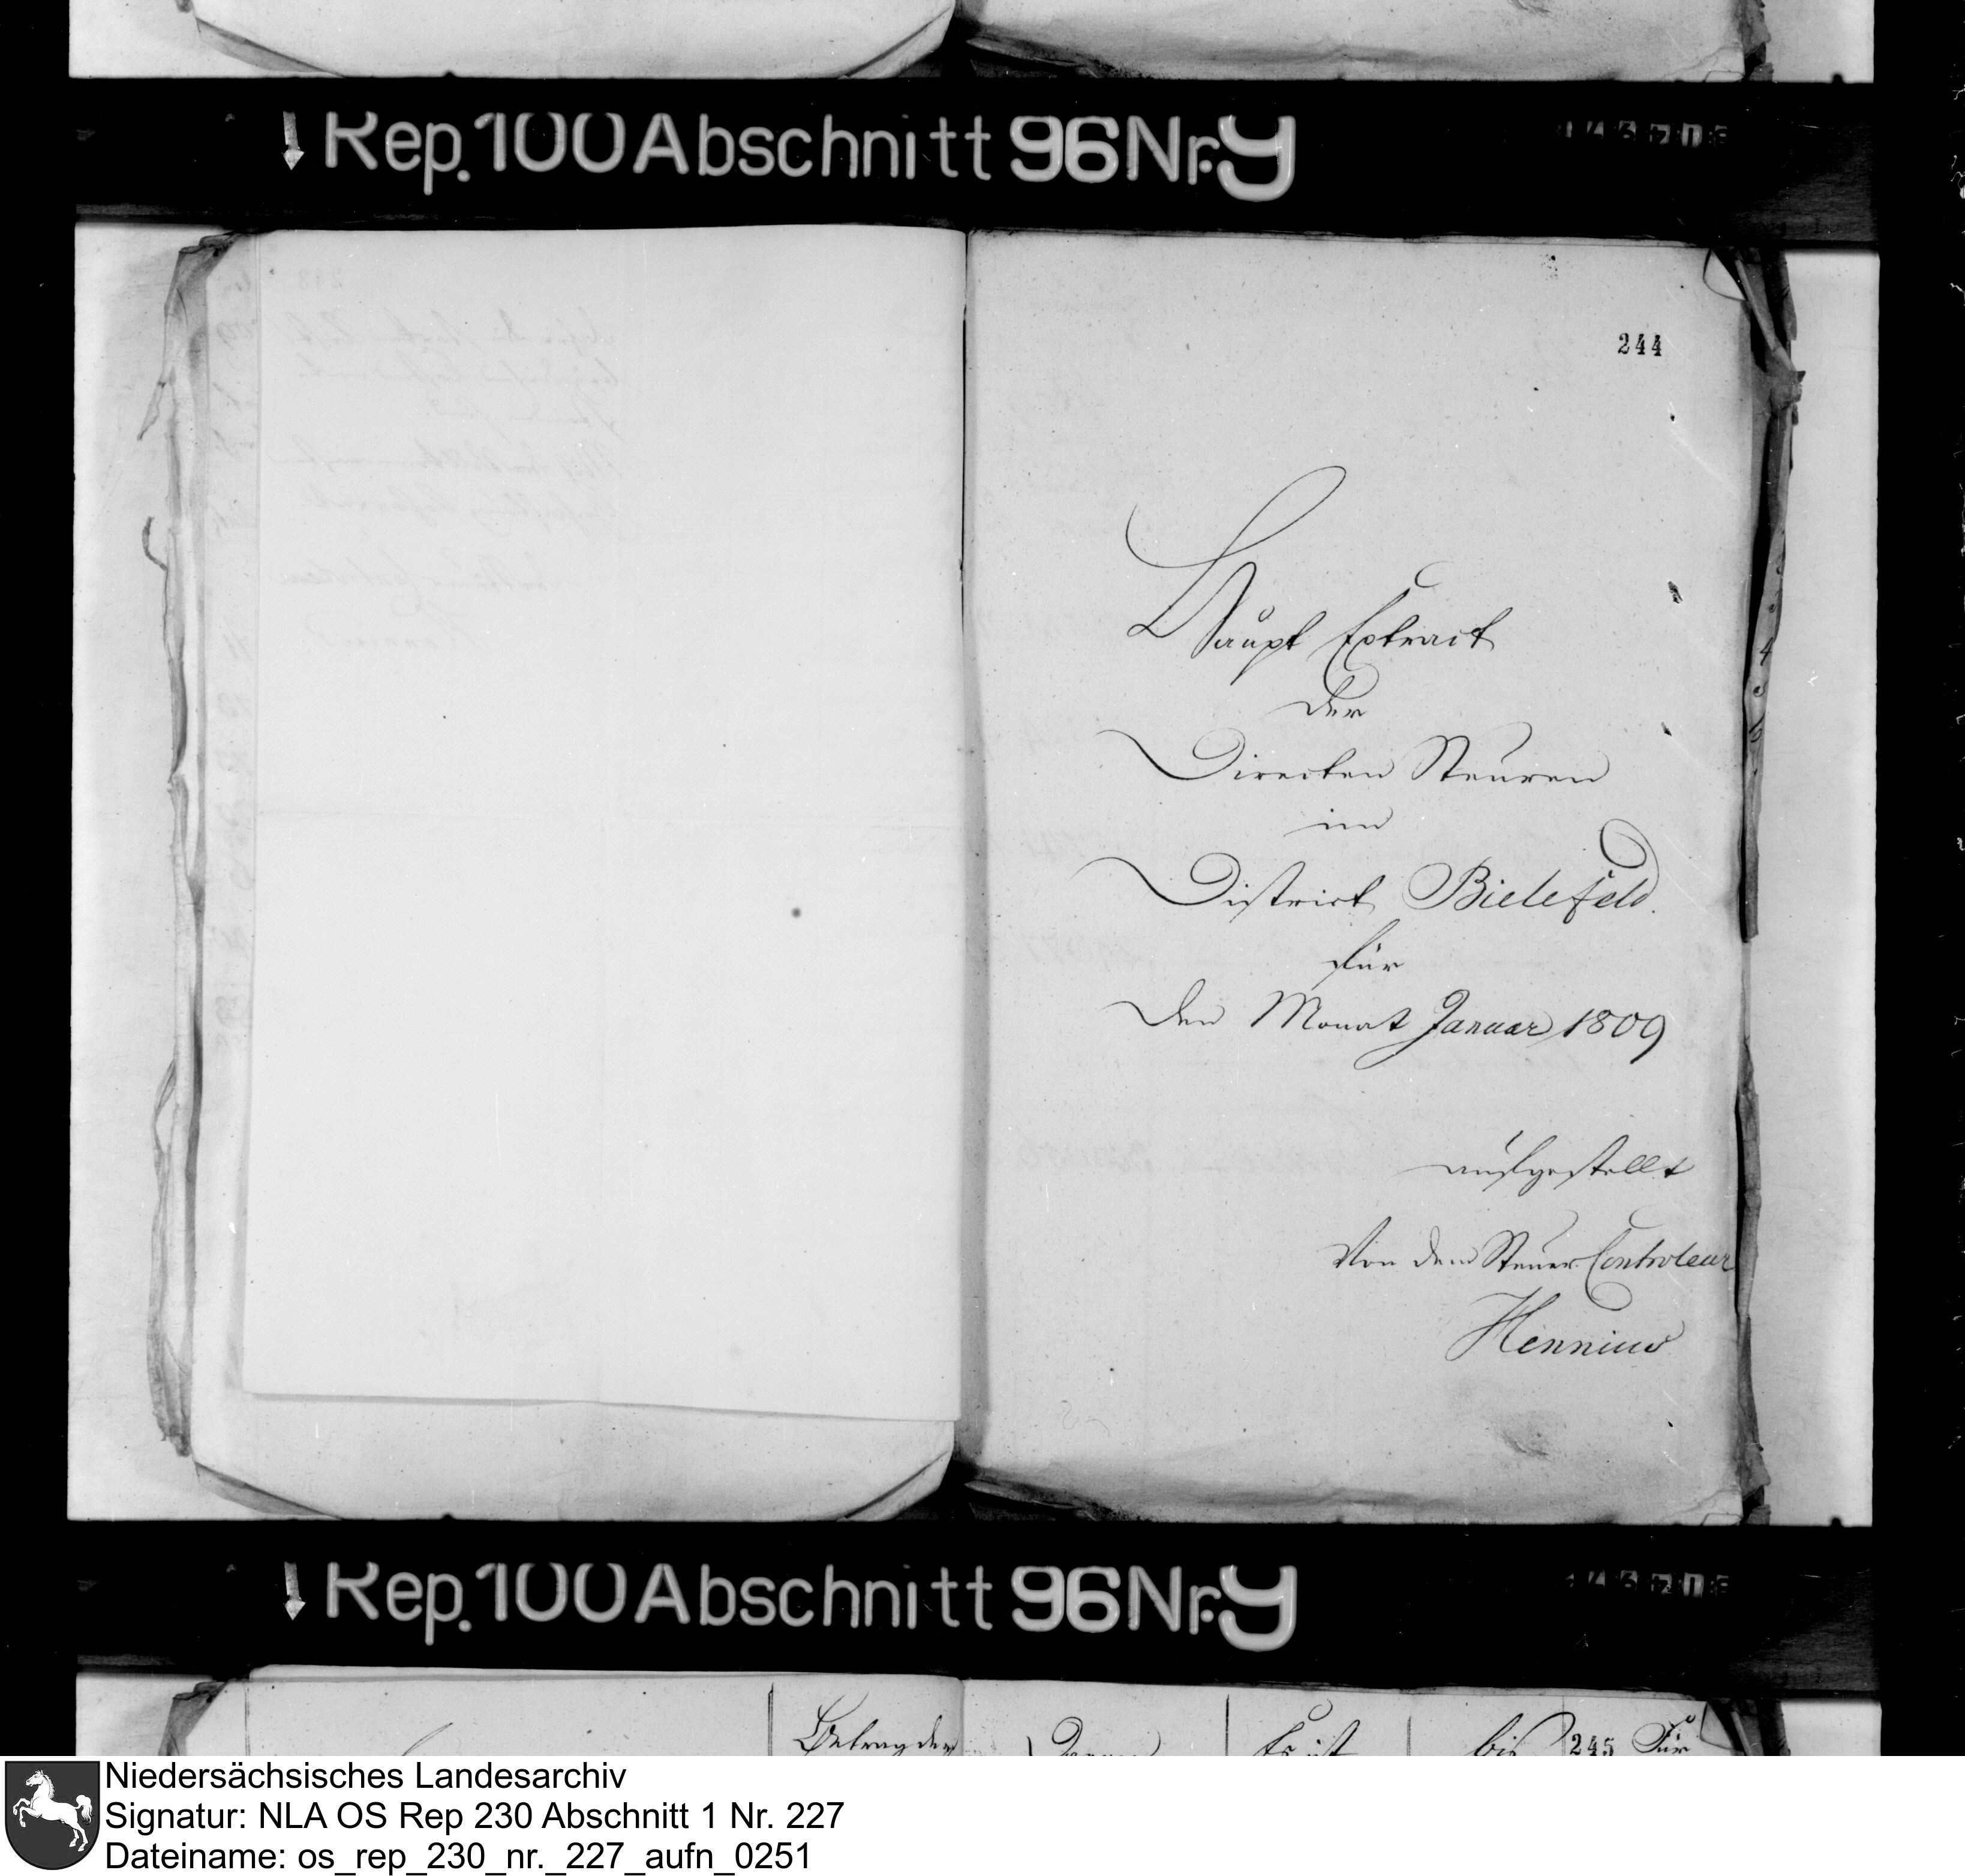 Rep. 100 Abschnitt 96 Nr. 9
244
Haupt Extract
der
Directen Steuren
im
District Bielefeld.
für
den Monat Januar 1809
ausgestellt
Von dem Steuer Controleur
Hennius
Rep. 100 Abschnitt 96 Nr. 9
Betrag der
Es ist
bis
245
Für
Niedersächsisches Landesarchiv
Signatur: NLA OS Rep 230 Abschnitt 1 Nr. 227
Dateiname: os_rep_230_nr._227_aufn_0251